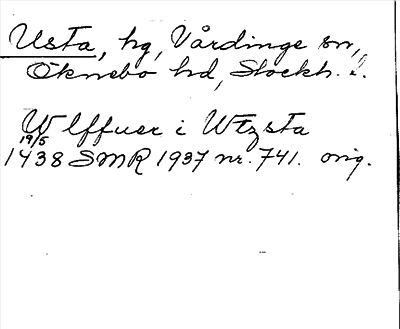 Usta, hg, Vårdinge sn,
Öknebo hd, Stockh. l.
Wlffuer i Wtzsta
19/5
1438 SMR 1937 nr. 741. orig.